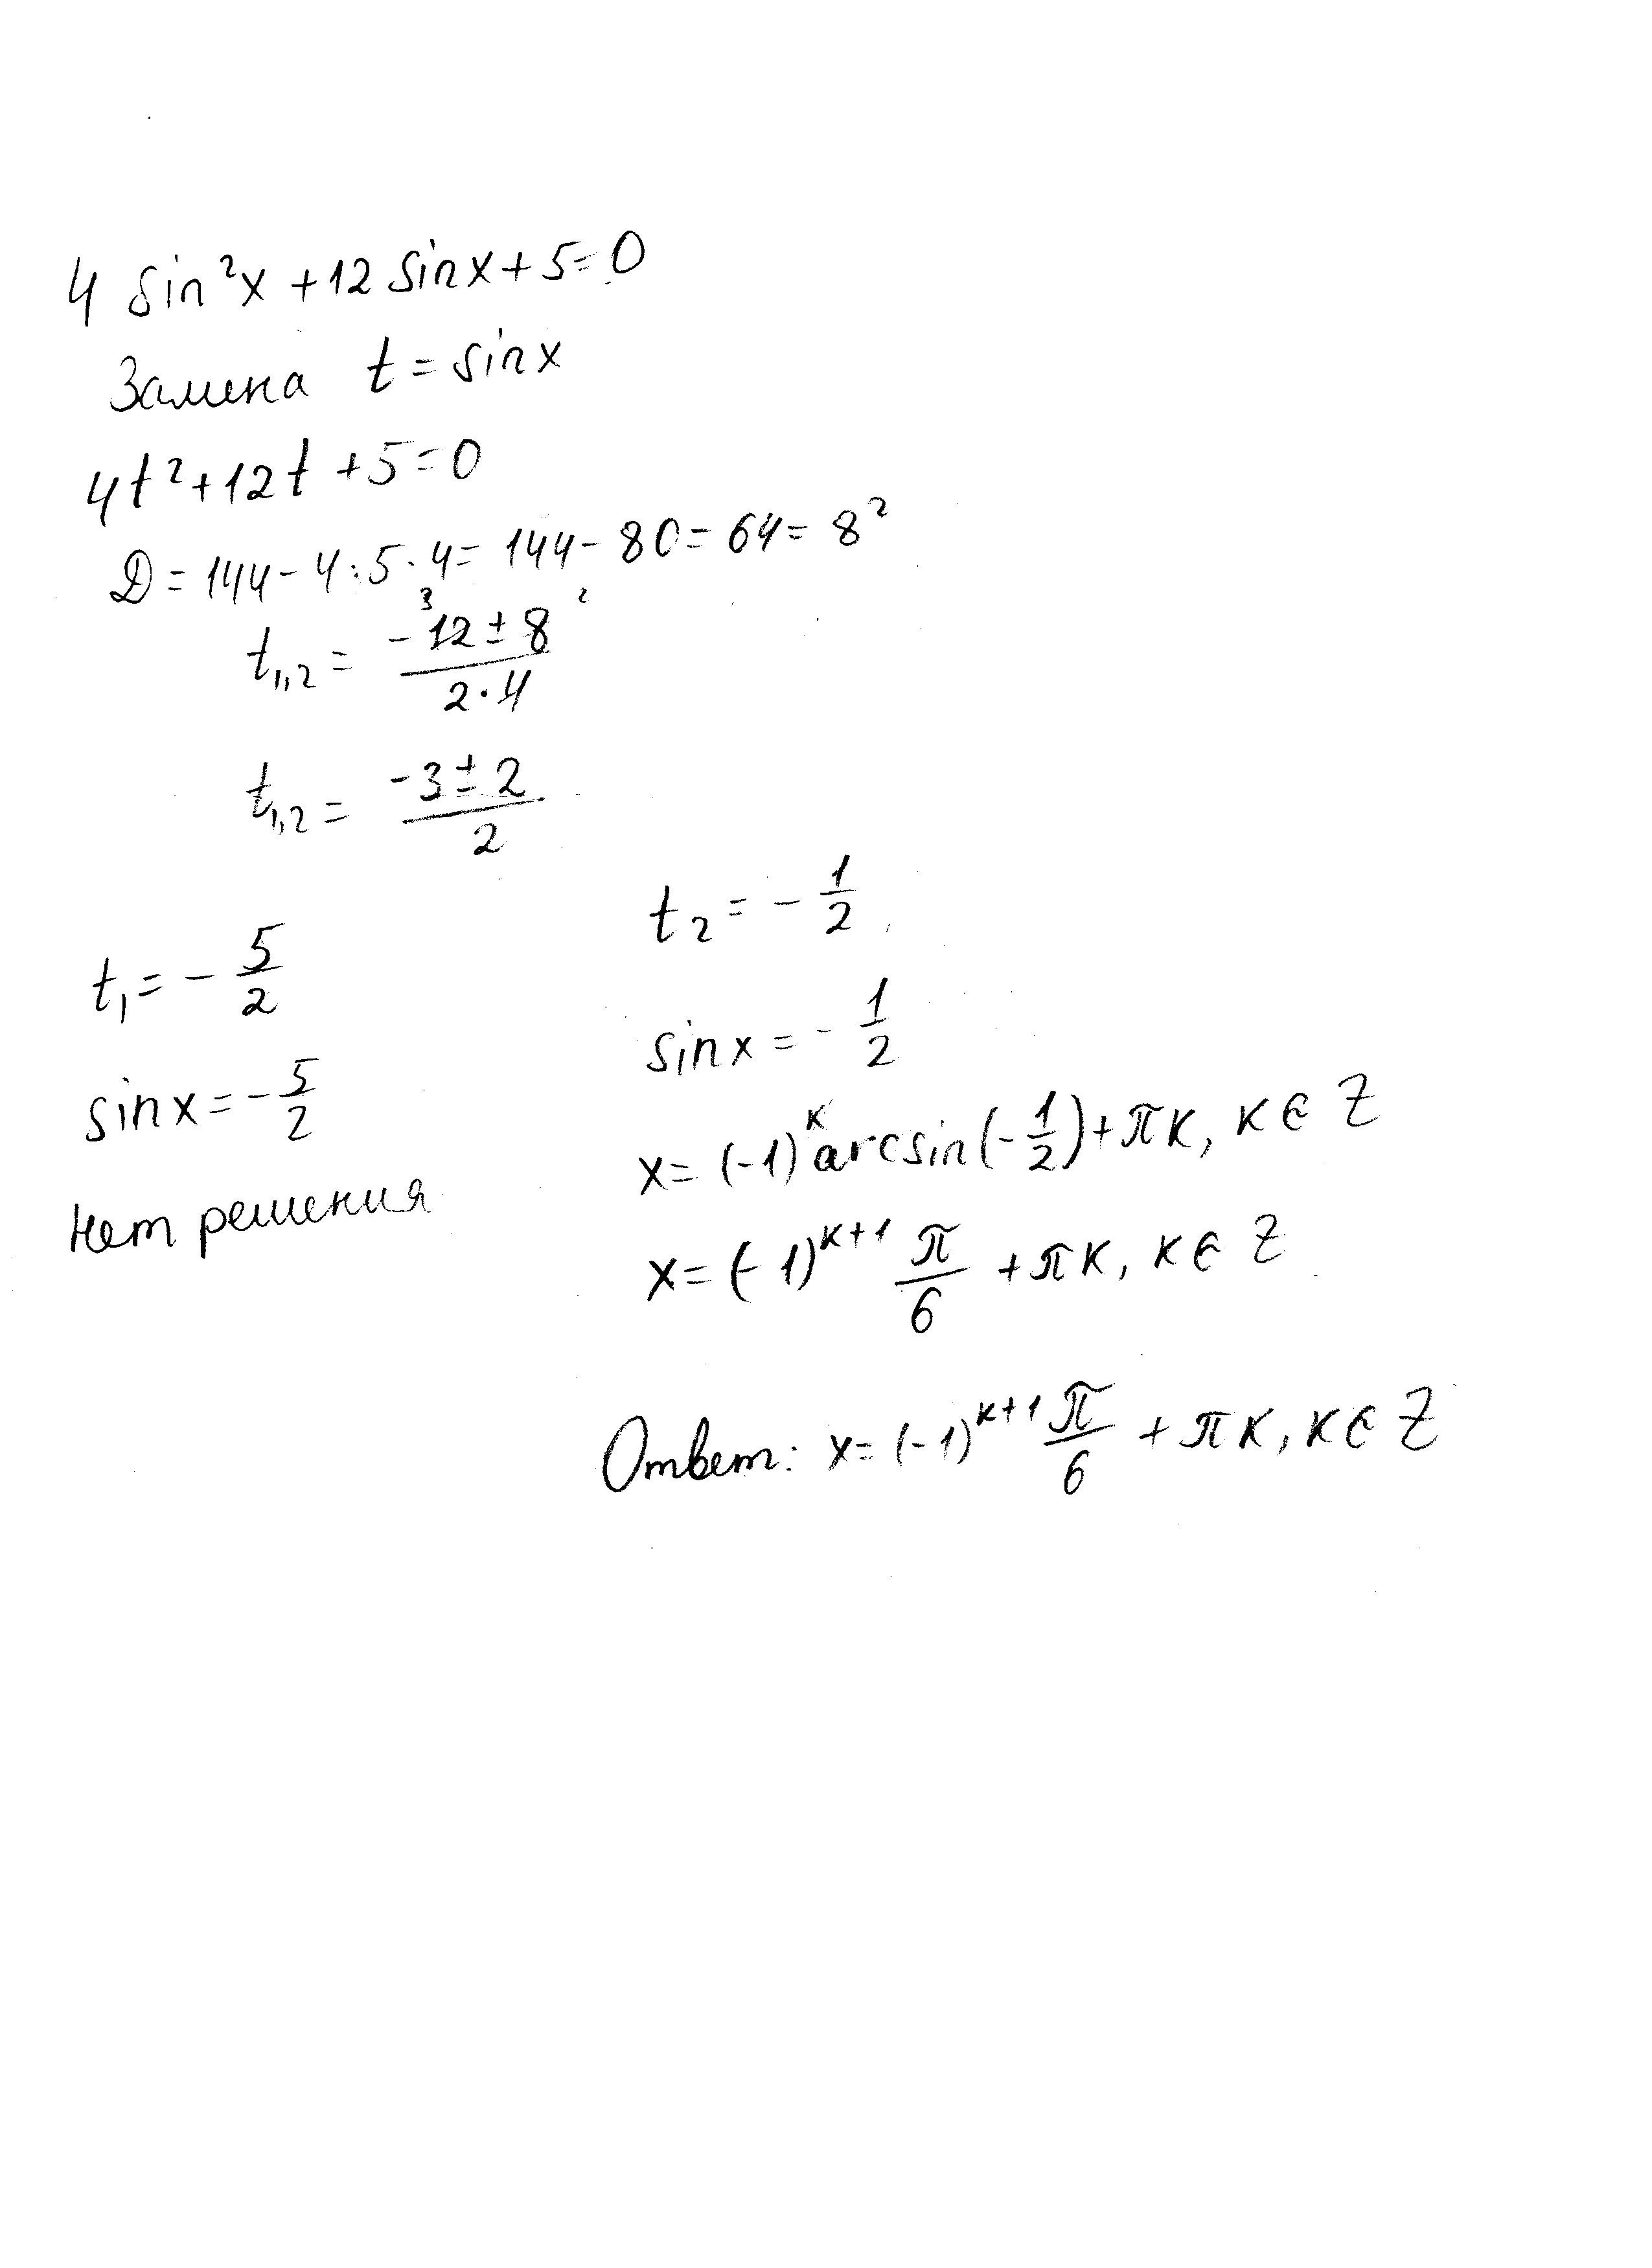 4 sin²x + 12 sinx + 5 = 0
Замена t = sinx
4t² + 12t + 5 = 0
D = 144 - 4 · 5 · 4 = 144 - 80 = 64 = 8²
3 2
t₁,₂ = (-12 ± 8)/(2 · 4)
t₁,₂ = (-3 ± 2)/2
t₁ = -5/2
sinx = -5/2
Нет решения
t₂ = -1/2
sinx = -1/2
x = (-1)ᵏ arcsin(-1/2) + πk, k ∈ Z
x = (-1)ᵏ⁺¹ π/6 + πk, k ∈ Z
Ответ: x = (-1)ᵏ⁺¹ π/6 + πk, k ∈ Z